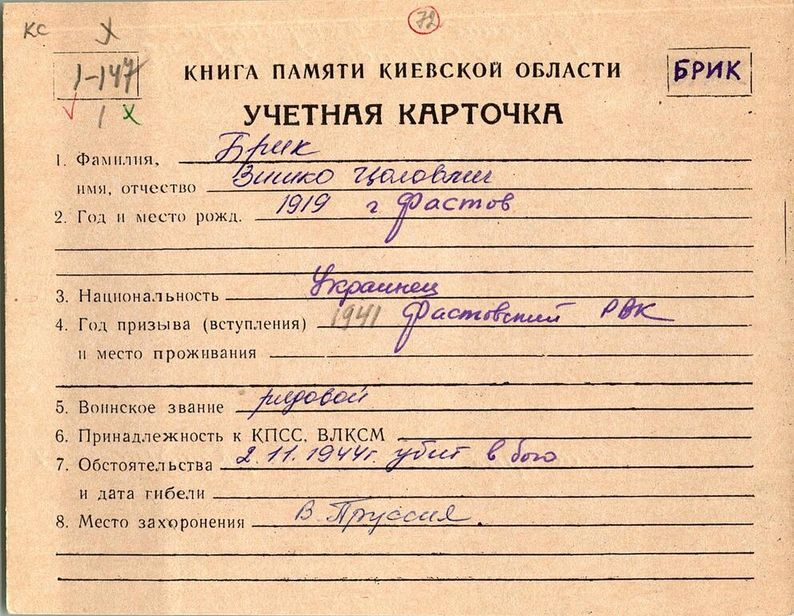 КС X 72
1-147 КНИГА ПАМЯТИ КИЕВСКОЙ ОБЛАСТИ БРИК
1 X УЧЕТНАЯ КАРТОЧКА
1. Фамилия, Брик
имя, отчество
2. Год и место рожд. 1919 г Фастов
3. Национальность Украинец
4. Год призыва (вступления) 1941 Фастовский РВК
и место проживания
5. Воинское звание рядовой
6. Принадлежность к КПСС, ВЛКСМ
7. Обстоятельства 2.11.1944г. убит в бою
и дата гибели
8. Место захоронения В. Пруссия.